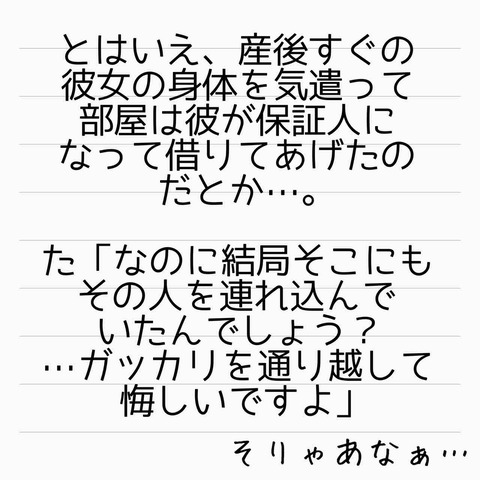 とはいえ、産後すぐの
彼女の身体を気遣って
部屋は彼が保証人に
なって借りてあげたの
だとか…。
た「なのに結局そこにも
その人を連れ込んで
いたんでしょう?
…ガッカリを通り越して
悔しいですよ」
そりゃあなぁ…